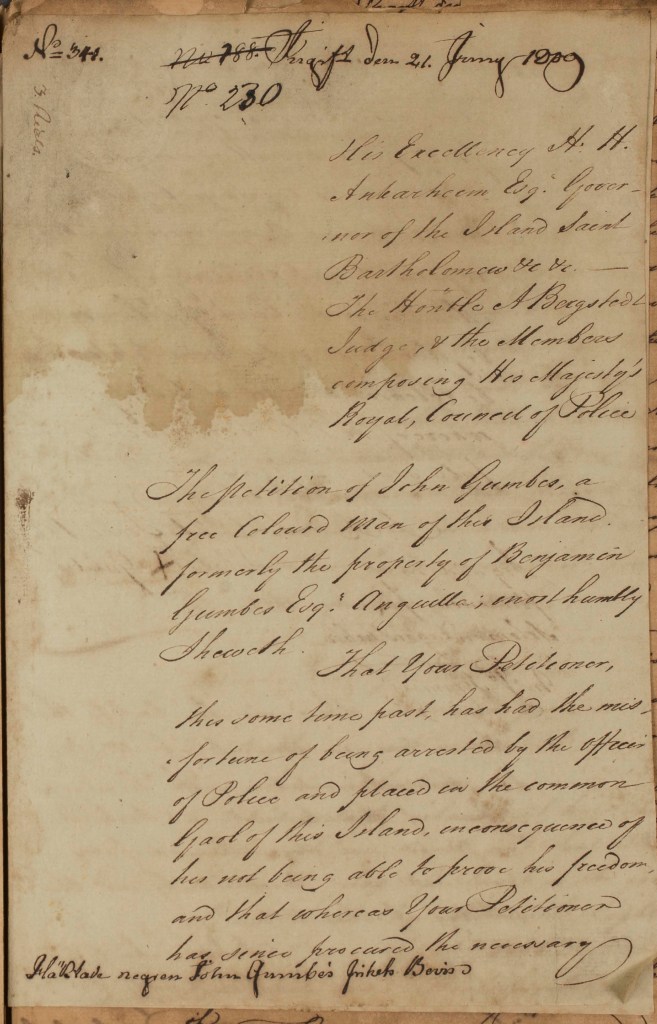 No 341.
No 788. Ingift den 21. Juny 1809
No 230
3. Rids.
His Excellency H. H.
Ankarheem Esqr. Gover-
nor of the Island Saint
Bartholomew &c &c. —
The Honble A Bergstedt
Judge, & the Members
composing His Majesty's
Royal, Council of Police
The petition of John Gumbes, a
free Colourd Man of this Island.
formerly the property of Benjamin
Gumbes Esqr. Anguilla; most humbly
Sheweth.
That Your Petitioner,
this some time past, has had the mis-
fortune of being arrested by the officer
of Police and placed in the common
Gaol of this Island, inconsequence of
his not being able to prove his freedom,
and that whereas Your Petitioner
has since procured the necessary
negren John Gumbes frihets Bevis